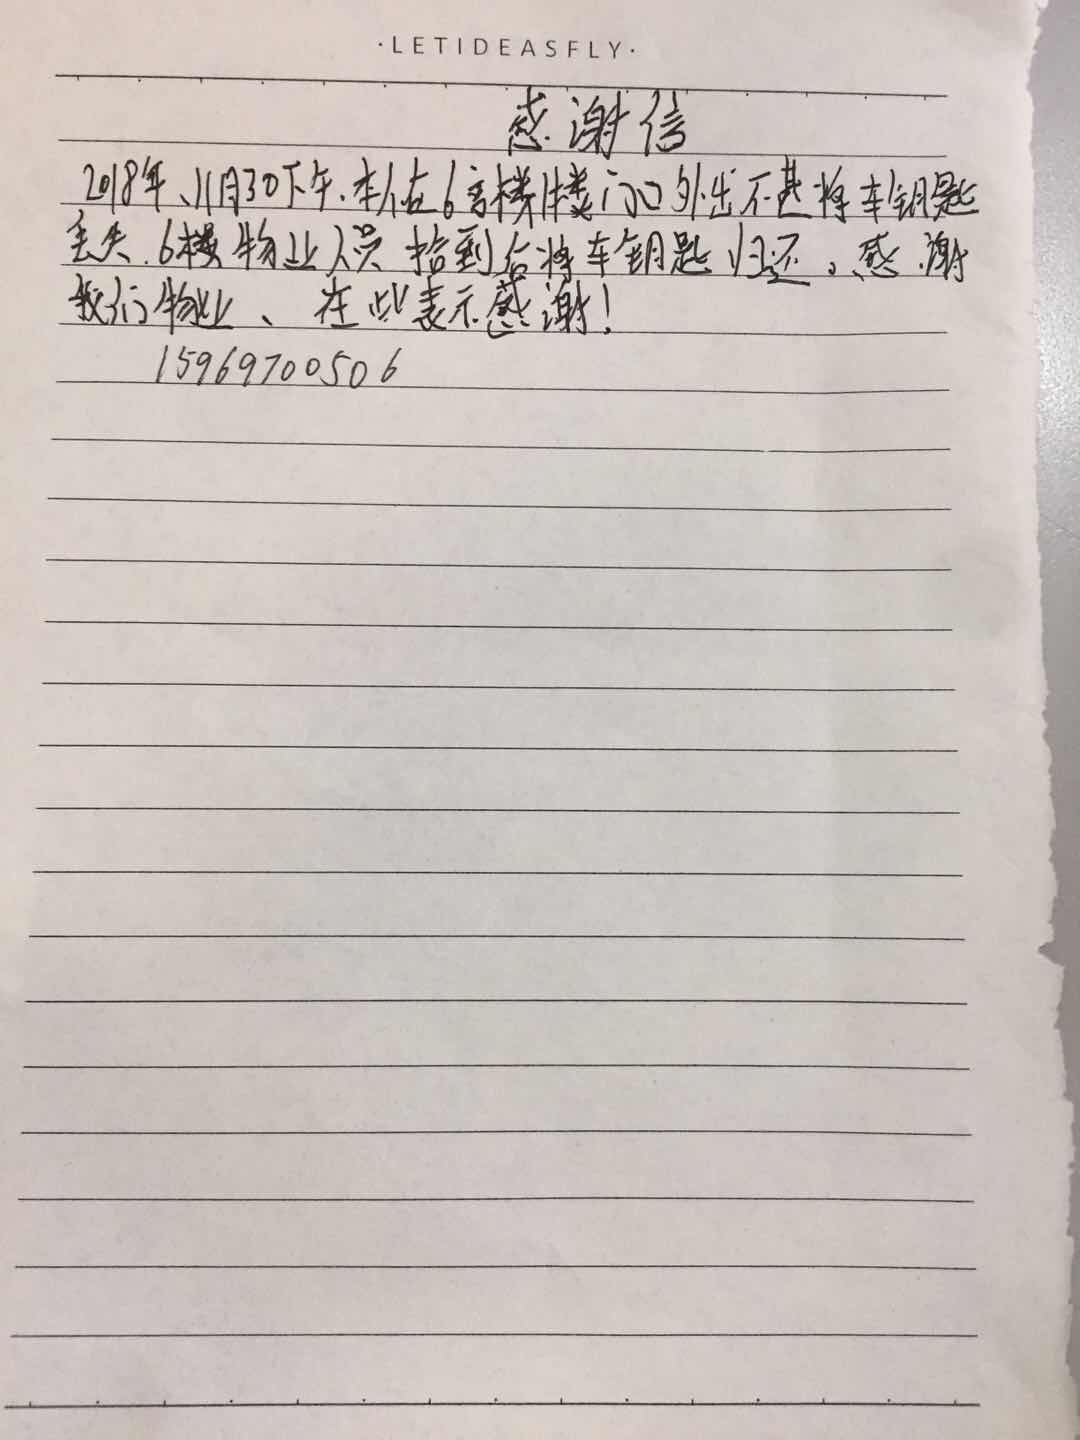 ·LETIDEASFLY·
感谢信
2018年、11月30下午.本人在6号楼1楼门口外出不甚将车钥匙
丢失.6楼物业人员拾到后将车钥匙归还。感谢
我们物业、在此表示感谢!
15969700506